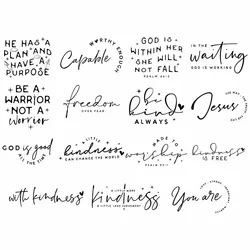 HE HAS A
PLAN AND
I HAVE A
PURPOSE
WORTHY ENOUGH
Capable
GOD IS
WITHIN HER
SHE WILL
NOT FALL
PSALM 46:5
in the
waiting
GOD IS WORKING
BE A
WARRIOR
NOT A
Worrier
freedom
OVER FEAR
be
kind
ALWAYS
Jesus
GOD IS good
all the
time
A LITTLE
kindness
CAN CHANGE THE WORLD
MADE TO
worship
PSALM
kindness
IS FREE
with kindness
kindness
A LITTLE MORE
A LITTLE LESS JUDGEMENT
You are